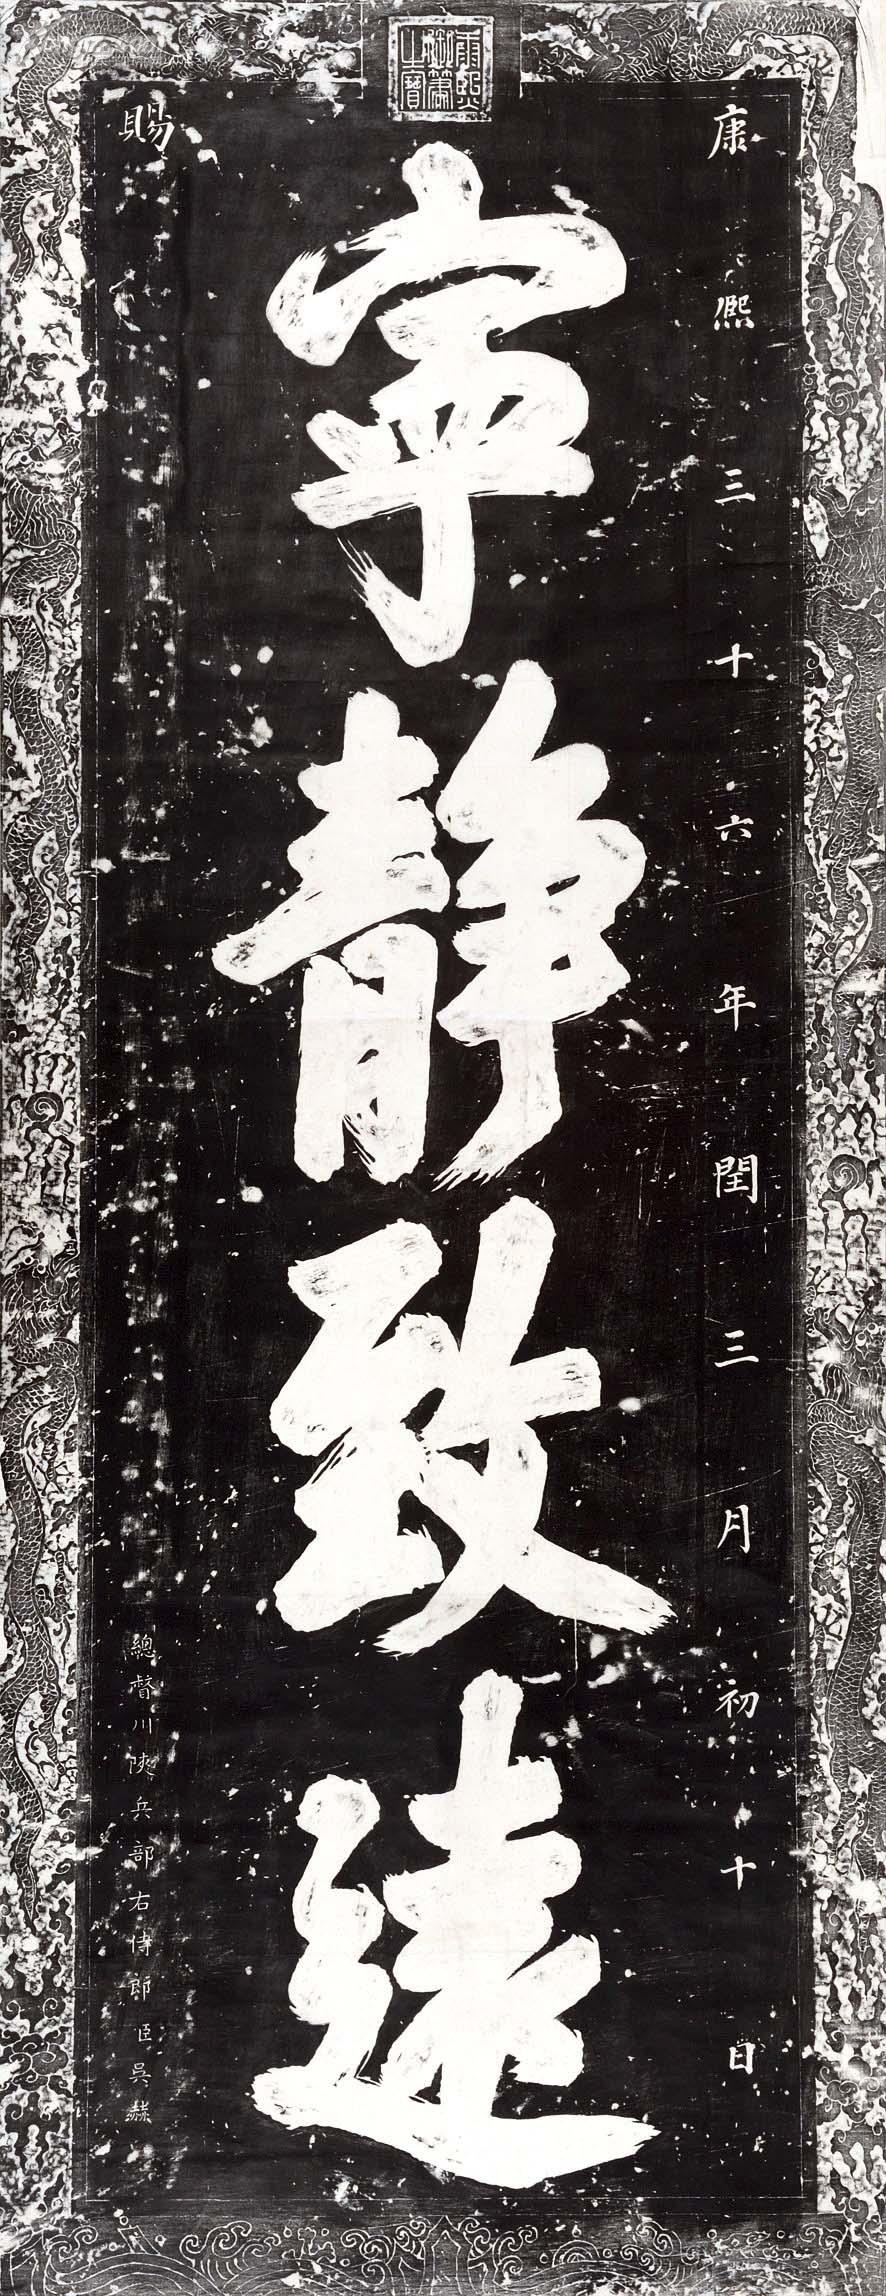 康熙御筆之寶
康熙三十六年閏三月初十日
寧靜致遠
賜
總督川陝兵部右侍郎臣吳赫